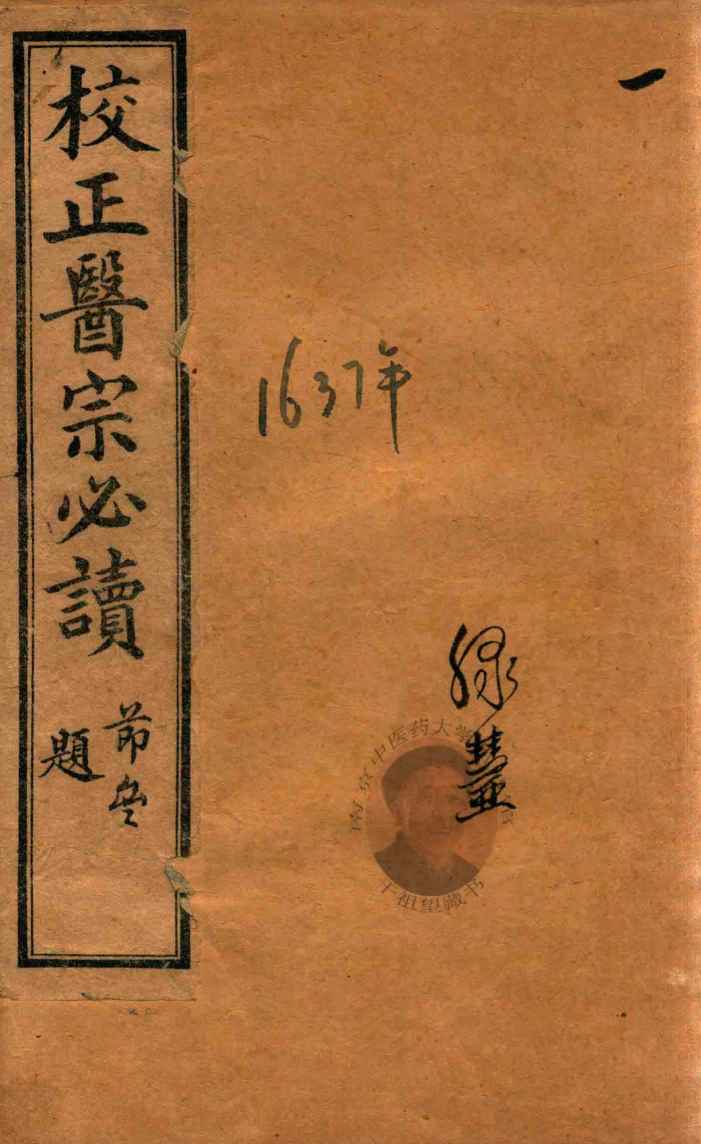 一
校正醫宗必讀
節叟
題
1637年
緑
南京中医药大学
干祖望藏书